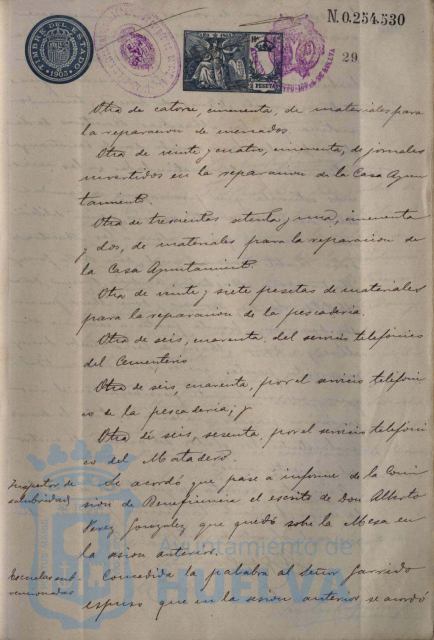 TIMBRE DEL ESTADO
1905
N.0.254.530
2 PESETAS
29
Otra de catorce, cincuenta, de materiales para
la reparacion de mercados.
Otra de veinte y cuatro, cincuenta, de jornales
invertidos en la reparacion de la Casa Ayun
tamiento.
Otra de trescientas setenta y una, cincuenta
y dos, de materiales para la reparacion de
la Casa Ayuntamiento.
Otra de veinte y siete pesetas de materiales
para la reparacion de la pescaderia.
Otra de seis, cuarenta, del servicio telefónico
del Cementerio
Otra de seis, cuarenta, por el servicio telefóni
co de la pescaderia; y
Otra de seis, sesenta, por el servicio telefóni
co del Matadero.
Inspector de
salubridad
Se acordó que pase a informe de la Comi
sion de Beneficencia el escrito de Don Alberto
Perez Gonzalez que quedó sobre la Mesa en
la sesion anterior.
Escuelas sub
vencionadas
Concedida la palabra al Señor Garrido
expuso que en la sesion anterior se acordó
Ayuntamiento de
HUELVA